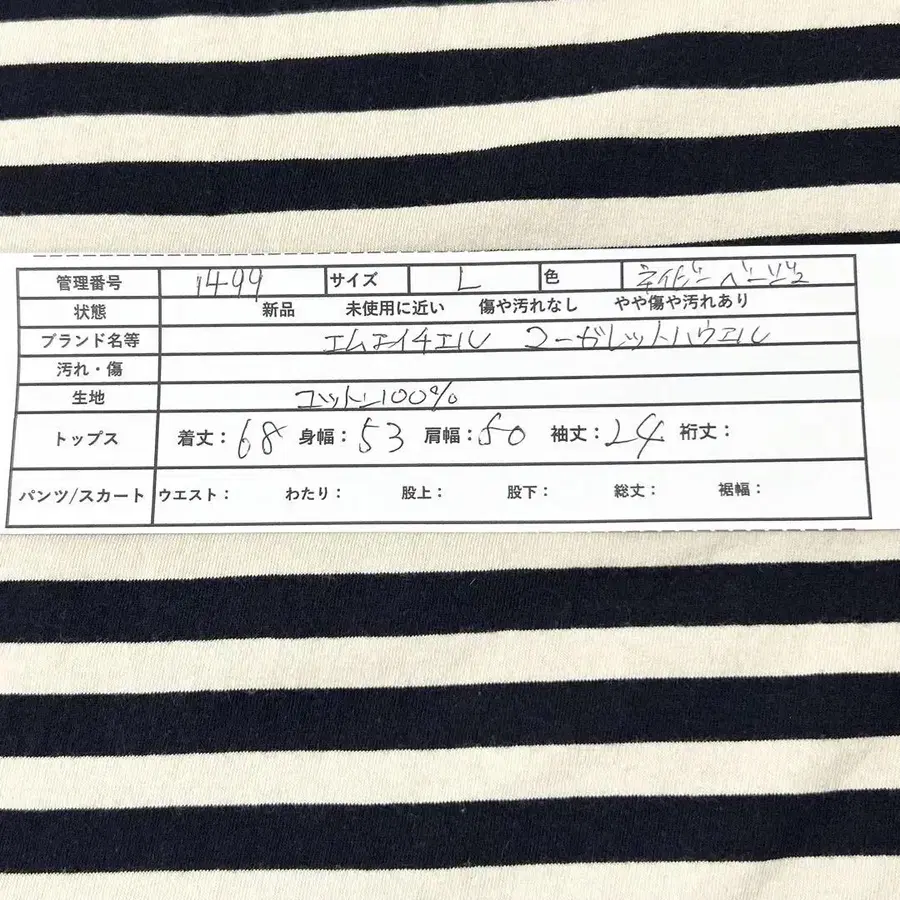 管理番号 1499 サイズ L 色 ネイビー ベージュ
状態 新品 未使用に近い 傷や汚れなし やや傷や汚れあり
ブランド名等 エムエイチエル マーガレットハウエル
汚れ・傷
生地 コットン100%
トップス 着丈：68 身幅：53 肩幅：50 袖丈：24 裄丈：
パンツ/スカート ウエスト： わたり： 股上： 股下： 総丈： 裾幅：